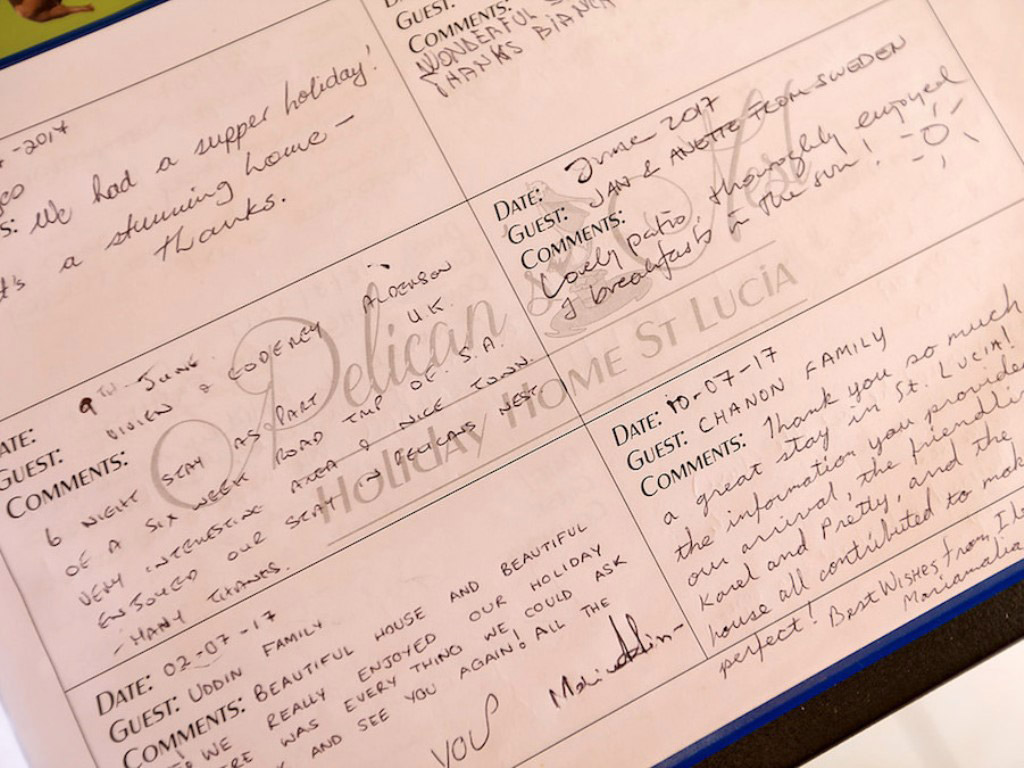 -2017
s: We had a supper holiday!
It's a stunning home -
thanks.
GUEST:
COMMENTS:
WONDERFUL
THANKS BIANCA
DATE: June 2017
GUEST: JAN & ANETTE FROM SWEDEN
COMMENTS:
Lovely patio, thoroughly enjoyed
of breakfasts in the sun!
Pelican Nest
HOLIDAY HOME ST LUCIA
DATE: 9TH JUNE
GUEST: VIVIEN & GODFREY ALDERSON
COMMENTS: UK
6 NIGHT STAY AS PART
OF A SIX WEEK ROAD TRIP OF S.A.
VERY INTERESTING AREA & NICE TOWN.
ENJOYED OUR STAY IN PELICANS NEST.
MANY THANKS.
DATE: 10-07-17
GUEST: CHANON FAMILY
COMMENTS: Thank you so much
a great stay in St. LUCIA!
the information you provided
our arrival, the friendlin
Karel and Pretty, and the
house all contributed to mak
perfect! Best Wishes from,
DATE: 02-07-17
GUEST: UDDIN FAMILY
COMMENTS: BEAUTIFUL HOUSE AND BEAUTIFUL
WE REALLY ENJOYED OUR HOLIDAY
ERE WAS EVERY THING WE COULD ASK
AND SEE YOU AGAIN! ALL THE
YOU